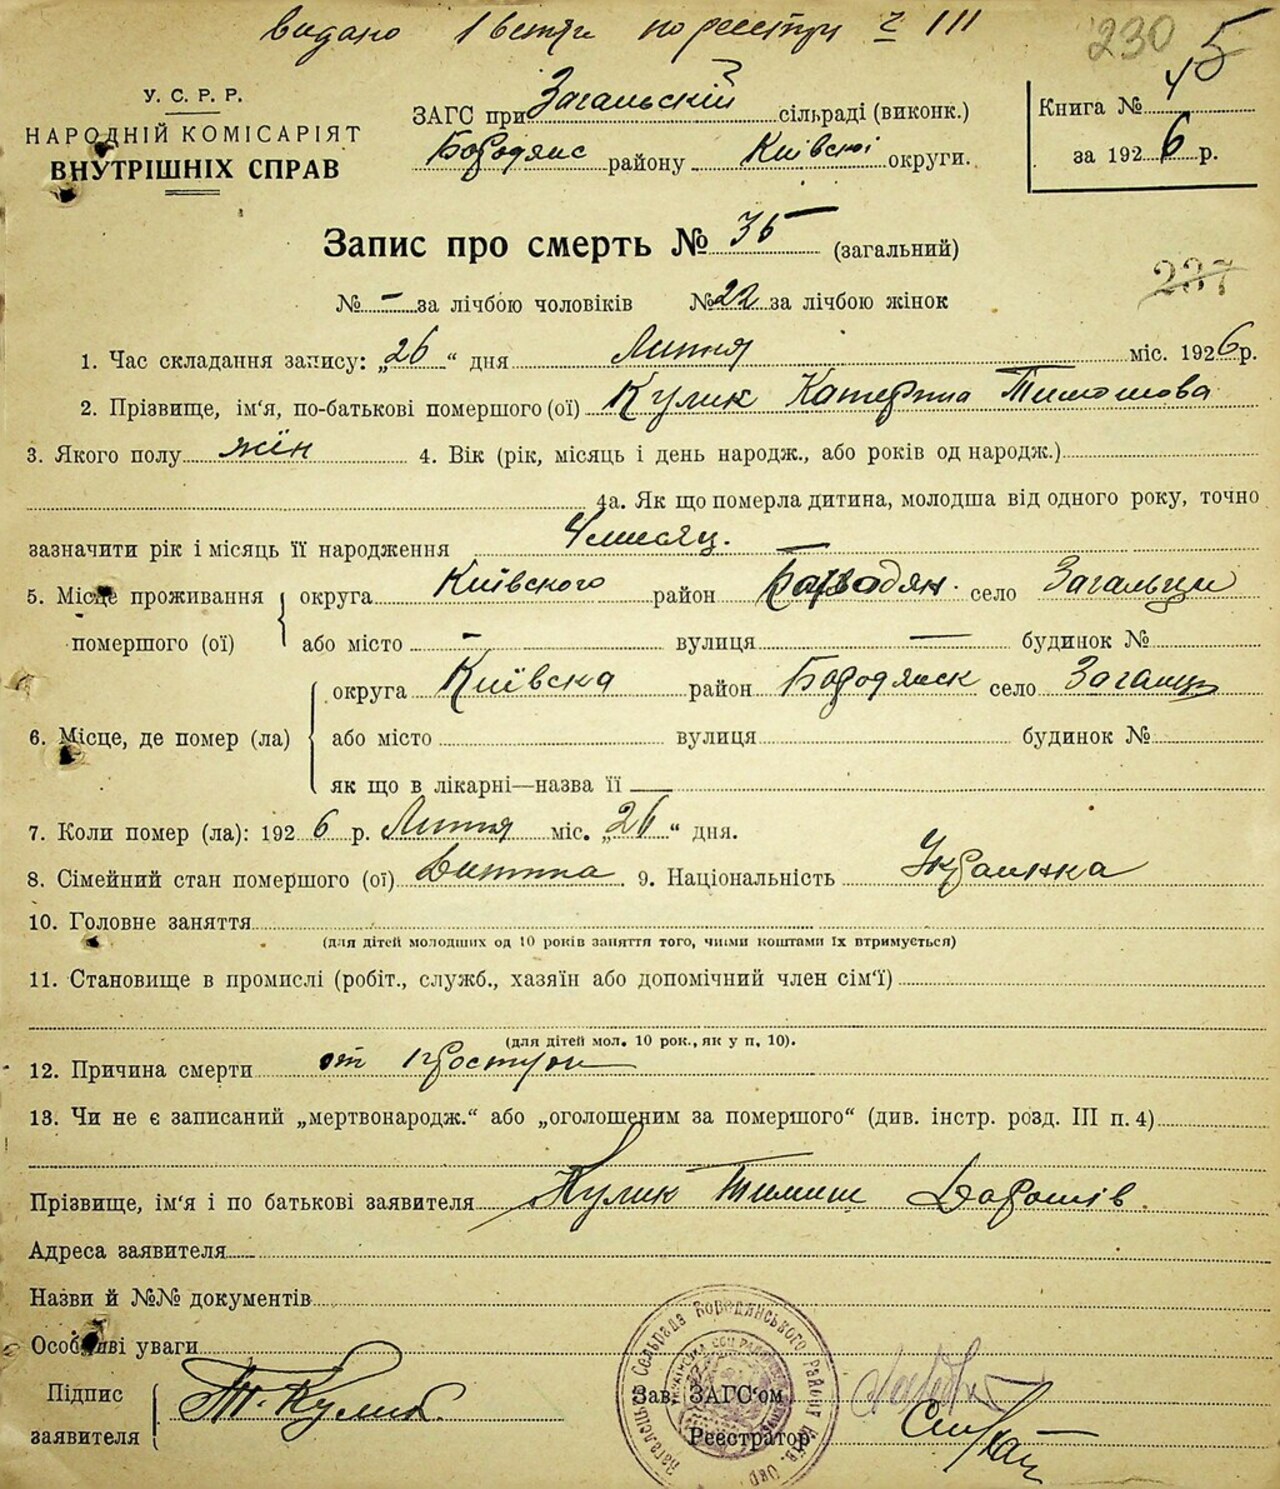 видано 1 витяг по реестру № 111
230 5
У. С. Р. Р.
НАРОДНІЙ КОМІСАРІЯТ
ВНУТРІШНІХ СПРАВ
ЗАГС при Загальскій сільраді (виконк.)
Бородянс району Київскої округи.
Книга № 4
за 1926 р.
Запис про смерть № 35 (загальний)
237
№ — за лічбою чоловіків № 22 за лічбою жінок
1. Час складання запису: „26“ дня Лютня міс. 1926 р.
2. Прізвище, ім‘я, по-батькові помершого (ої) Кулик Катерина Тимошова
3. Якого полу жін 4. Вік (рік, місяць і день народж., або років од народж.)
4а. Як що померла дитина, молодша від одного року, точно
зазначити рік і місяць її народження 4 мисяц.
5. Місце проживання округа Київского район Бородян. село Загальци
помершого (ої) або місто — вулиця — будинок №
округа Київска район Бородянск село Загальц
6. Місце, де помер (ла) або місто вулиця будинок №
як що в лікарні—назва її —
7. Коли помер (ла): 1926 р. Лютня міс. „26“ дня.
8. Сімейний стан помершого (ої) Дитина 9. Національність Украинка
10. Головне заняття
(для дітей молодших од 10 років заняття того, чиїми коштами їх втримується)
11. Становище в промислі (робіт., служб., хазяїн або допомічний член сім‘ї)
(для дітей мол. 10 рок., як у п. 10).
12. Причина смерти от простуди
13. Чи не є записаний „мертвонародж.“ або „оголошеним за помершого“ (див. інстр. розд. III п. 4)
Прізвище, ім‘я і по батькові заявителя Кулик Тимиш Дорошів
Адреса заявителя
Назви й №№ документів
Особливі уваги
Підпис
заявителя Т. Кулик
Зав. ЗАГС‘ом
Реєстратор
Загалець Сельрада Бородянського Району Київ. Окр